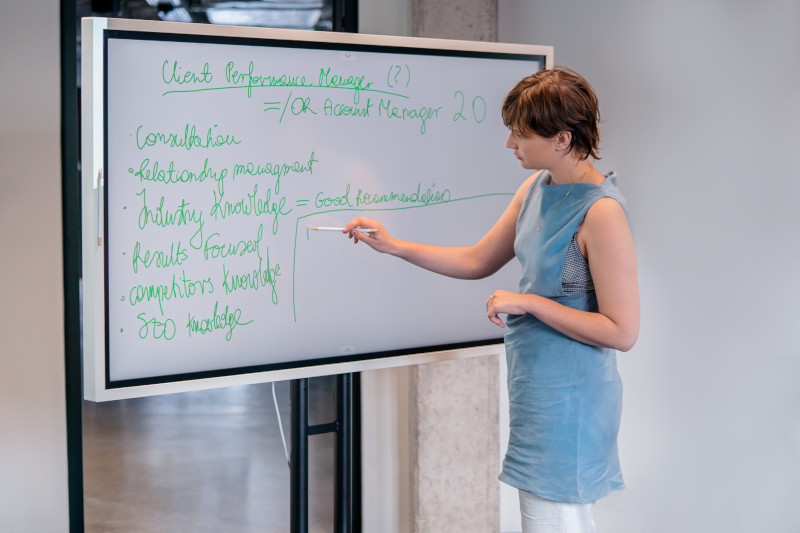 Client Performance Manager (?)
=/OR Account Manager 2.0
· Consultation
· Relationship managment
· Industry Knowledge = Good Recommendation
· Results Focused
· competitors knowledge
· SEO knowledge